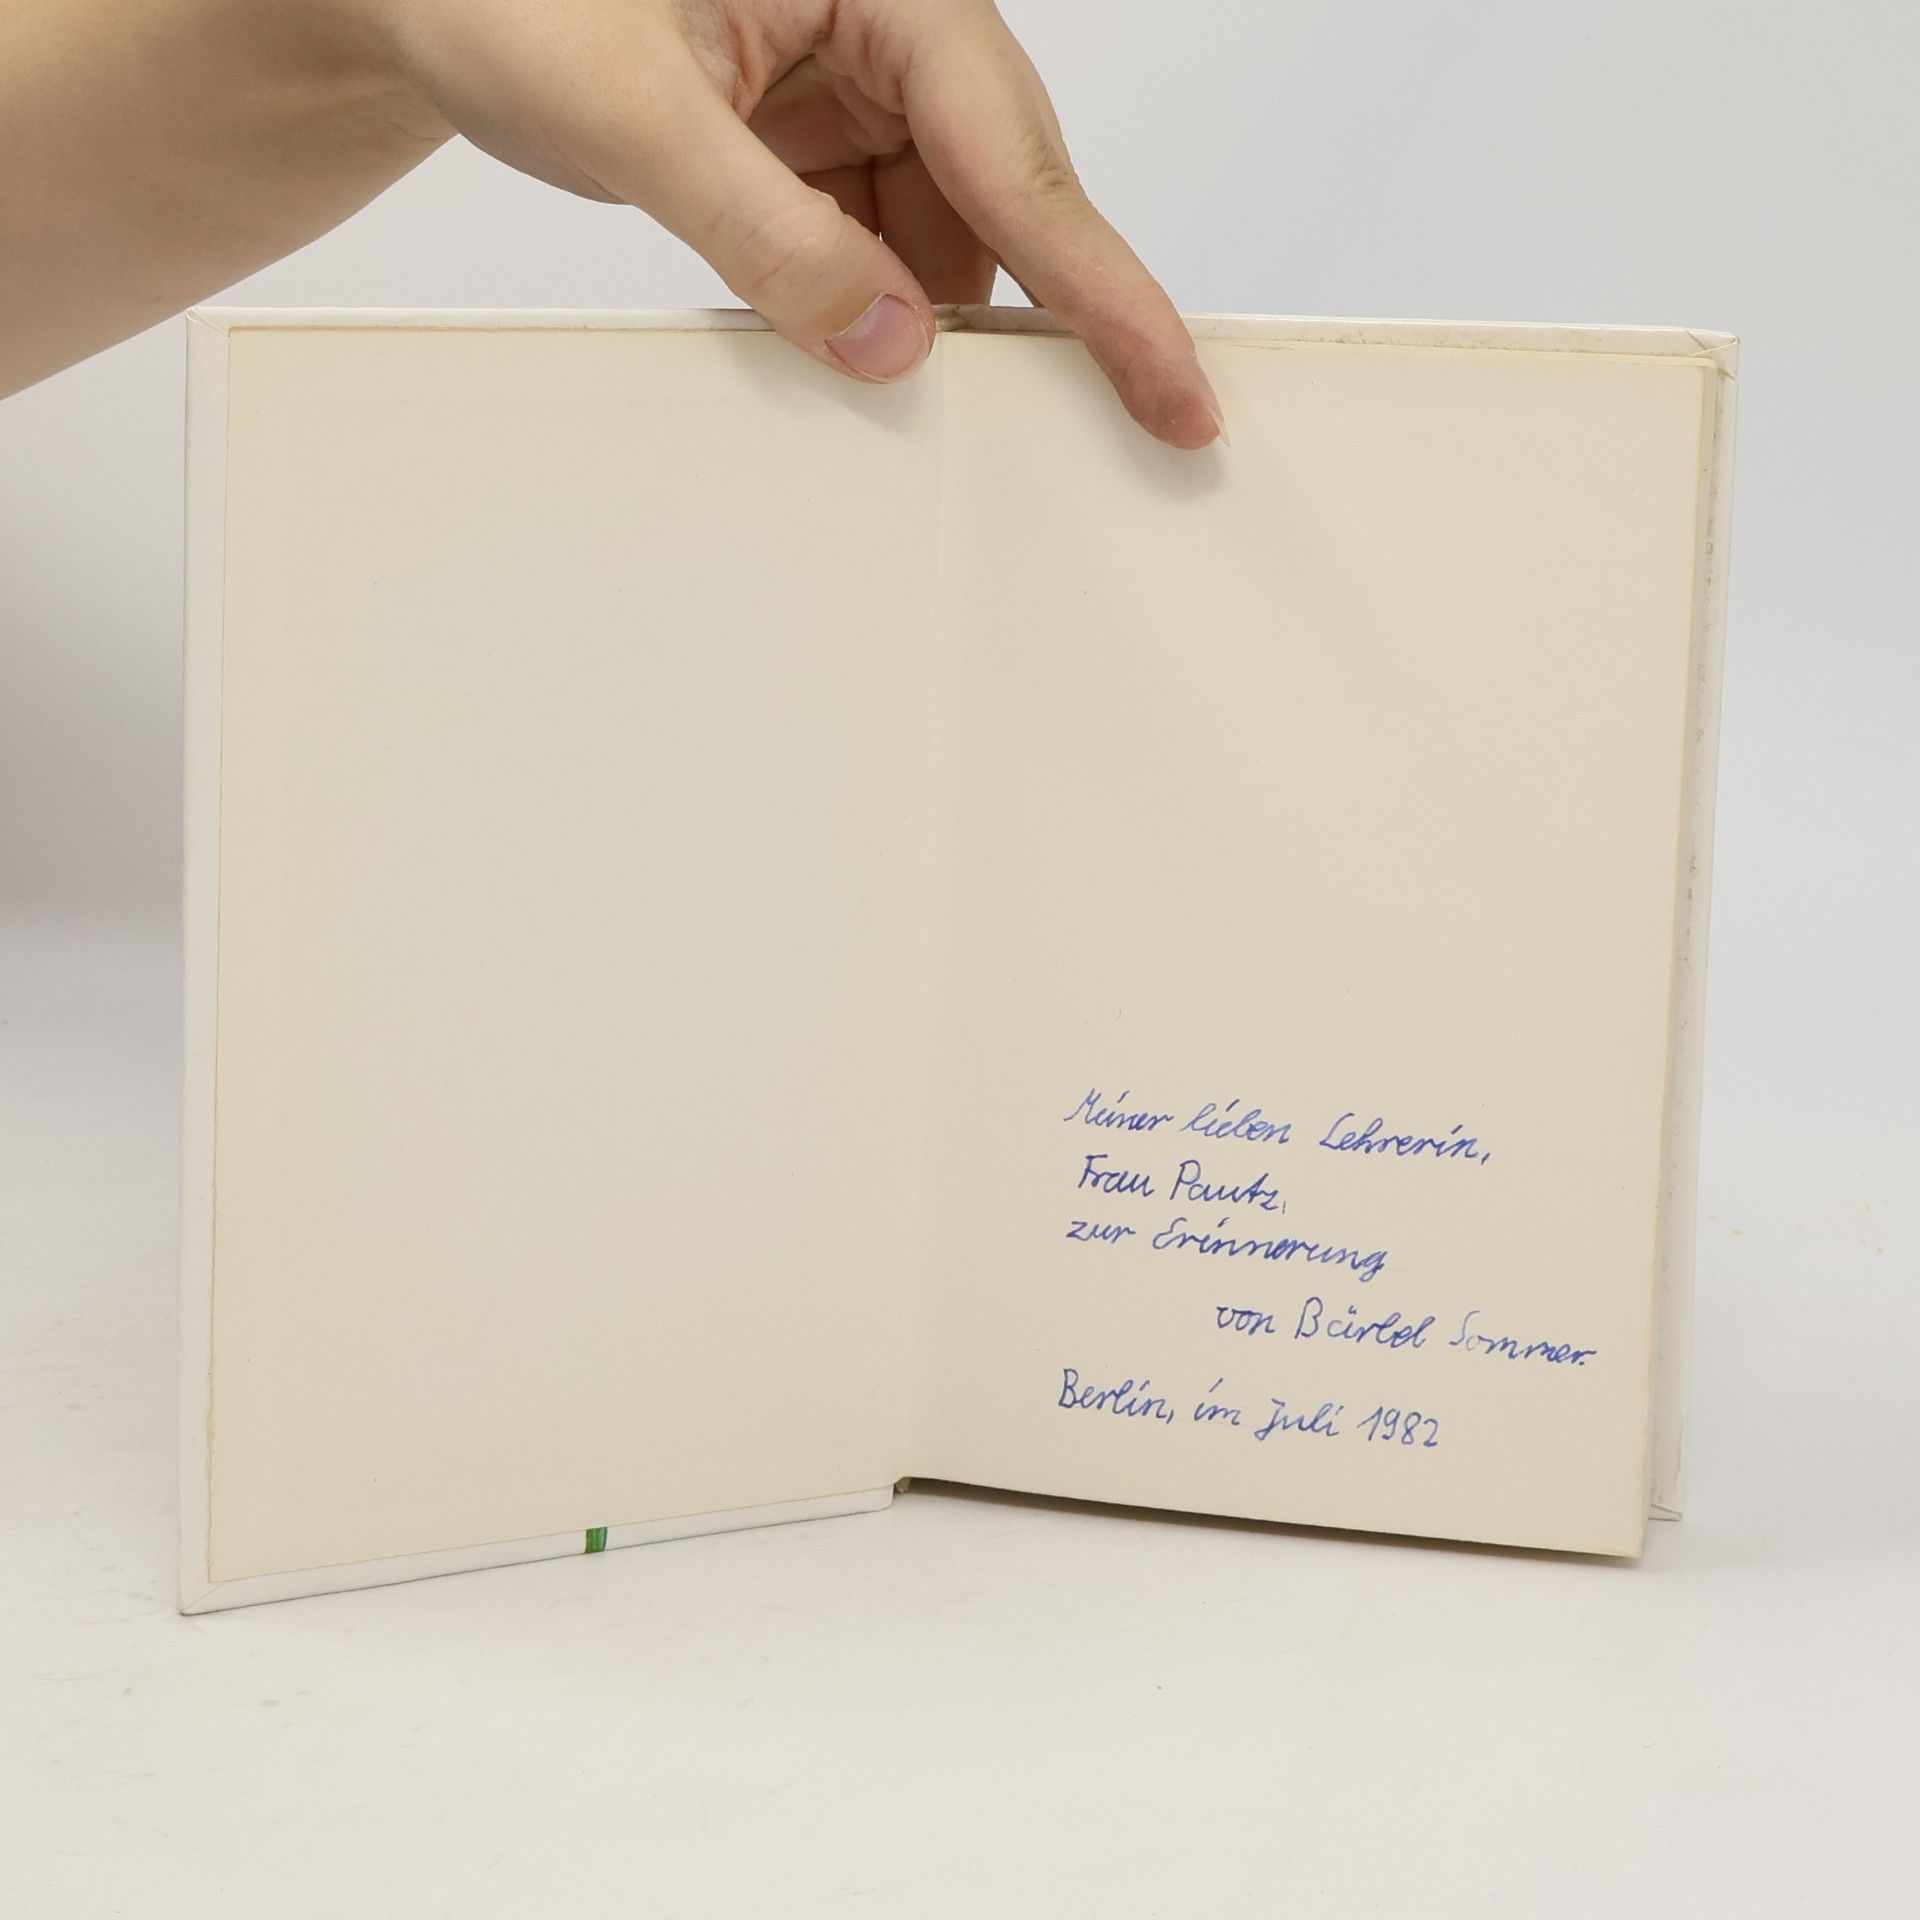 Meiner lieben Lehrerin,
Frau Pautz,
zur Erinnerung
von Bärbel Sommer.
Berlin, im Juli 1982